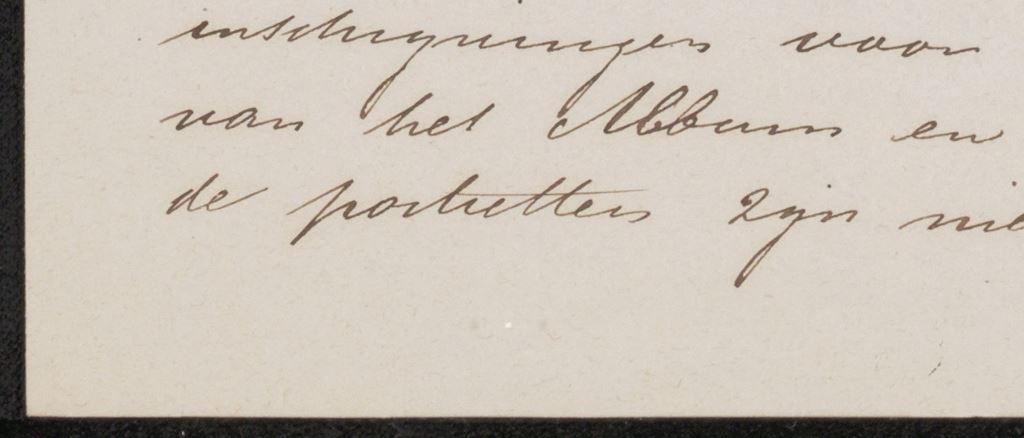 inschrijvingen voor
van het Album en
de portretten zijn